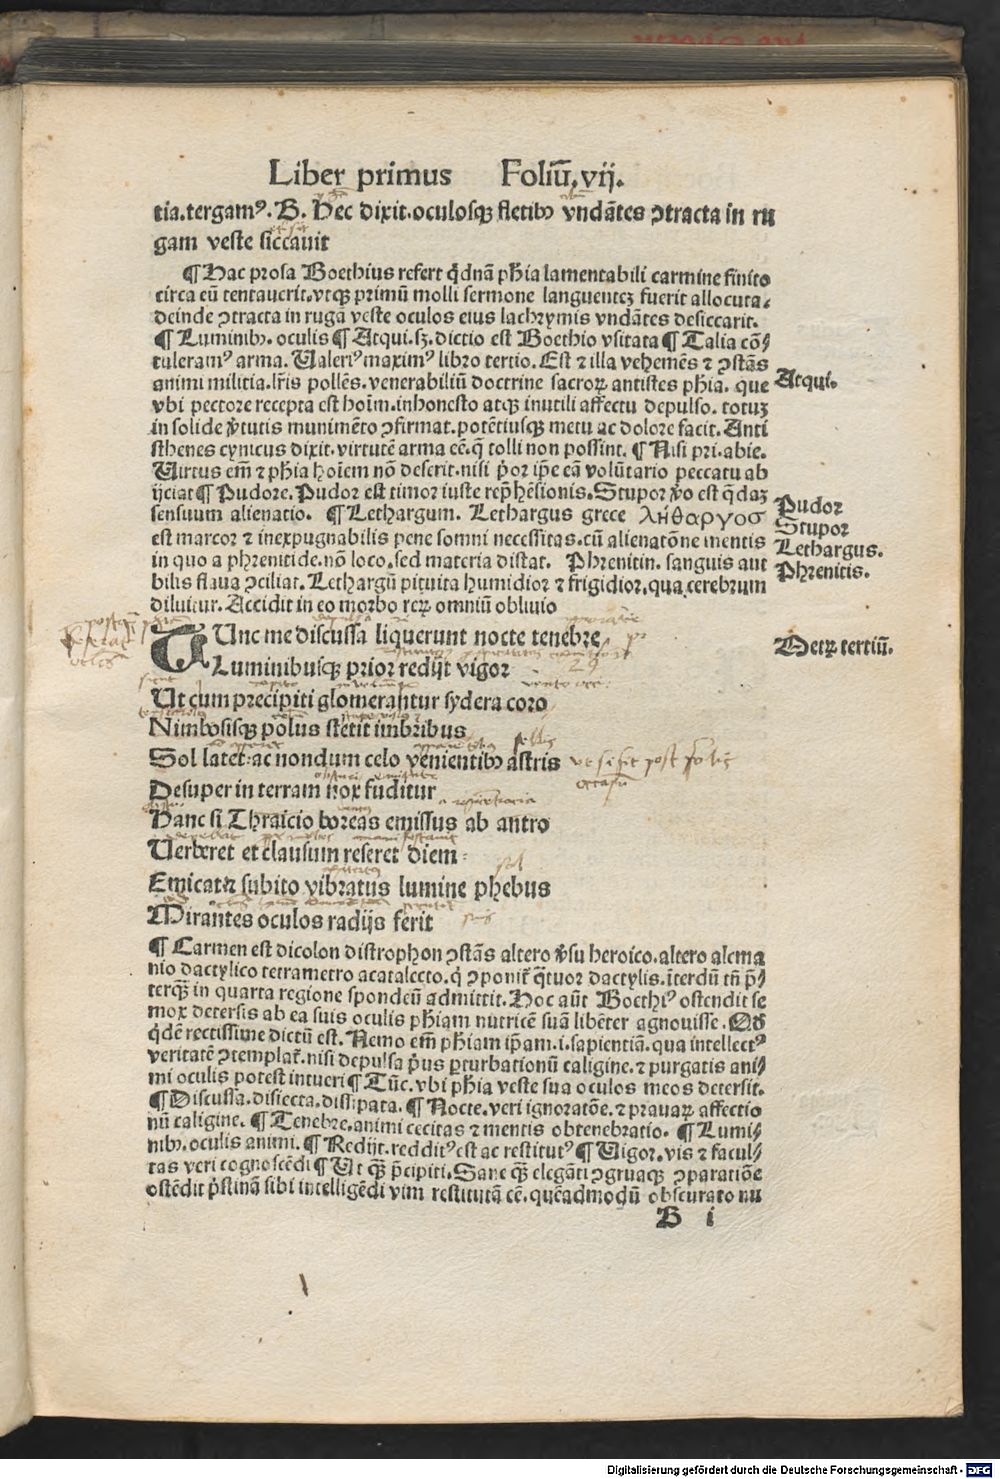 Liber primus Foliū.vij.
tia.tergamꝰ. B. Hec dixit.oculosqꝫ fletibꝰ vndātes ↄtracta in ru
gam veste siccauit
¶ Hac prosa Boethius refert qͥdnā ph̄ia lamentabili carmine finito
circa eū tentauerit.vtqꝫ primū molli sermone languenteꝫ fuerit allocuta.
deinde ↄtracta in rugā veste oculos eius lachrymis vndātes desiccarit.
¶ Luminibꝰ. oculis ¶ Atqui.sꝫ. dictio est Boethio vsitata ¶ Talia cō⸗
tuleramꝰ arma. Valeriꝰ maximꝰ libro tertio. Est ⁊ illa vehemēs ⁊ ↄstās
animi militia.lr̄is pollēs.venerabiliū doctrine sacroꝝ antistes ph̄ia. que
vbi pectore recepta est hoīm.inhonesto atqꝫ inutili affectu depulso. totuꝫ
in solide v̓tutis munimēto ↄfirmat.potētiusqꝫ metu ac dolore facit. Anti
sthenes cynicus dixit.virtutē arma eē.q̄ tolli non possint. ¶ Nisi pri.abie.
Virtus em̄ ⁊ ph̄ia hoīem nō deserit.nisi p̓or ip̄e eā volūtario peccatu ab
ijciat ¶ Pudore. Pudor est timor iuste rep̄hēsionis. Stupor v̓o est q̄daꝫ
sensuum alienatio. ¶ Lethargum. Lethargus grece λήθαργος
est marcor ⁊ inexpugnabilis pene somni necessitas.cū alienatōne mentis
in quo a phrenitide.nō loco.sed materia distat. Phrenitin. sanguis aut
bilis flaua ↄciliat. Lethargū pituita humidior ⁊ frigidior.qua cerebrum
diluitur. Accidit in eo morbo reꝝ omniū obliuio
Atqui.
Pudor
Stupor
Lethargus.
Phrenitis.
TUnc me discussa liquerunt nocte tenebre
Luminibusqꝫ prior redijt vigor
Metꝝ tertiū.
Ut cum precipiti glomerantur sydera coro
Nimbosisqꝫ polus stetit imbribus
Sol latet.ac nondum celo venientibꝰ astris
Desuper in terram nox fuditur
Hanc si Thraicio boreas emissus ab antro
Uerberet et clausum reseret diem
Emicat ⁊ subito vibratus lumine phebus
Mirantes oculos radijs ferit
¶ Carmen est dicolon distrophon ↄstās altero v̓su heroico.altero alcma
nio dactylico tetrametro acatalecto.q̓ ↄponit̄ q̄tuor dactylis.īterdū tn̄ p̄⸗
terqꝫ̄ in quarta regione spondeū admittit. Hoc aūt Boethiꝰ ostendit se
mox detersis ab ea suis oculis ph̄iam nutricē suā libēter agnouisse. Qd̓
q̓dē rectissime dictū est. Nemo em̄ ph̄iam ip̄am.i.sapientiā.qua intellectꝰ
veritatē ↄtemplat̄.nisi depulsa p̓us ꝑturbationū caligine.⁊ purgatis ani⸗
mi oculis potest intueri ¶ Tūc.vbi ph̄ia veste sua oculos meos detersit.
¶ Discussa.disiecta.dissipata. ¶ Nocte.veri ignoratōe.⁊ prauaꝝ affectio
nū caligine. ¶ Tenebre.animi cecitas ⁊ mentis obtenebratio. ¶ Lumi⸗
nibꝰ.oculis animi. ¶ Redijt.redditꝰ est ac restitutꝰ ¶ Vigor.vis ⁊ facul⸗
tas veri cognoscēdi ¶ Ut qꝫ̄ p̄cipiti. Sane qꝫ̄ elegāti ↄgruaqꝫ ↄparatiōe
ostēdit p̓stinā sibi intelligēdi vim restitutā eē.quēadmodū obscurato nu
B i
Digitalisierung gefördert durch die Deutsche Forschungsgemeinschaft - DFG